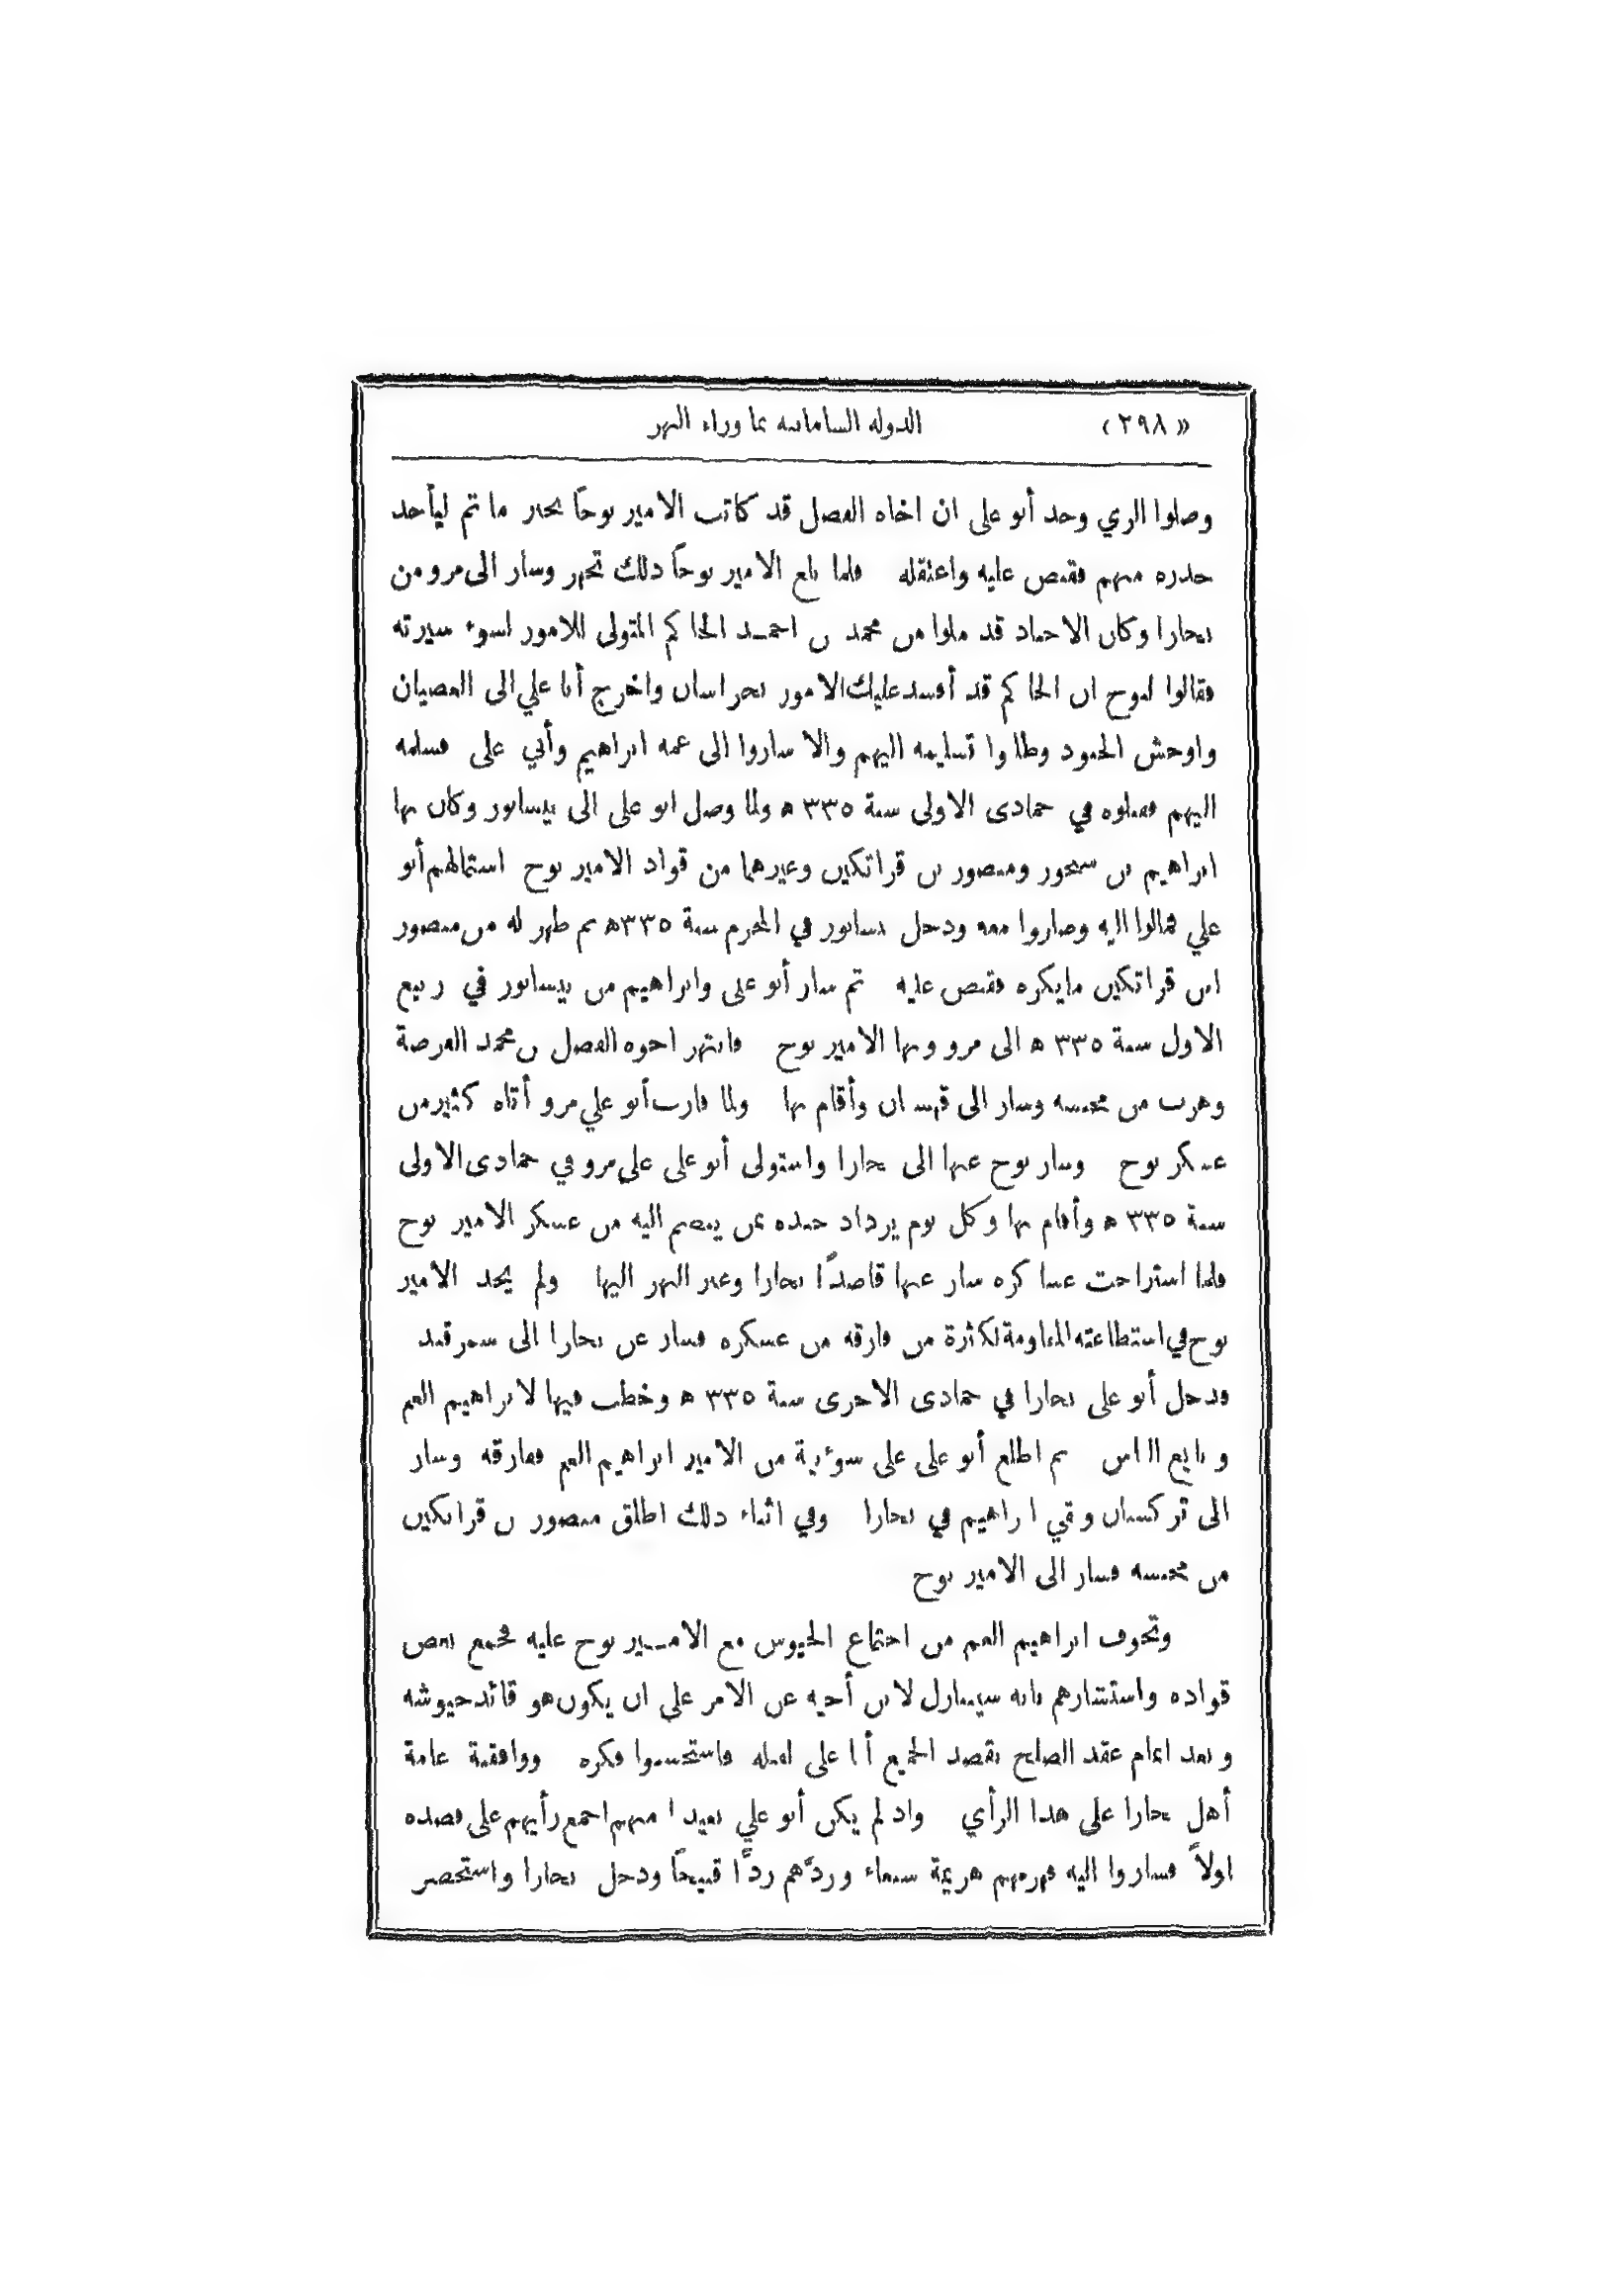 «٢٩٨» الدولة السامانية بما وراء النهر
وصلوا الري وجد أبو على ان اخاه الفضل قد كاتب الامير نوحًا بخبر ما تم ليأخذ
حذره منهم فقبض عليه واعتقله فلما بلغ الامير نوحًا ذلك تجهز وسار الى مرو من
بخارا وكان الاجناد قد ملوا من محمد بن احمد الحاكم المتولى للامور لسوء سيرته
فقالوا لنوح ان الحاكم قد أفسد عليك الامور بخراسان واخرج أبا علي الى العصيان
واوحش الجنود وطلبوا تسليمه اليهم والا ساروا الى عمه ابراهيم وأبي على فسلمه
اليهم فقتلوه في جمادى الاولى سنة ٣٣٥ ه ولما وصل ابو على الى نيسابور وكان بها
ابراهيم بن سمجور ومنصور بن قراتكين وغيرهما من قواد الامير نوح استمالهم أبو
علي فمالوا اليه وصاروا معه ودخل نسابور في المحرم سنة ٣٣٥ه ثم ظهر له من منصور
ابن قراتكين مايكره فقبض عليه ثم سار أبو على وابراهيم من نيسابور في ربيع
الاول سنة ٣٣٥ ه الى مرو وبها الامير نوح فانتهز اخوه الفضل بن محمد الفرصة
وهرب من محبسه وسار الى قهستان وأقام بها ولما قارب أبو علي مرو أتاه كثير من
عسكر نوح وسار نوح عنها الى بخارا واستولى أبو على على مرو في جمادى الاولى
سنة ٣٣٥ ه وأقام بها وكل يوم يزداد جنده بمن ينضم اليه من عسكر الامير نوح
فلما استراحت عساكره سار عنها قاصدًا بخارا وعبر النهر اليها ولم يجد الامير
نوح في استطاعته المقاومة لكثرة من فارقه من عسكره فسار عن بخارا الى سمرقند
ودخل أبو على بخارا في جمادى الاخرى سنة ٣٣٥ ه وخطب فيها لابراهيم العم
وبايع الناس ثم اطلع أبو على على سوء نية من الامير ابراهيم العم ففارقه وسار
الى تركستان وبقي ابراهيم في بخارا وفي اثناء ذلك اطلق منصور بن قراتكين
من محبسه فسار الى الامير نوح
وتخوف ابراهيم العم من اجتماع الجيوش مع الامير نوح عليه فجمع بعض
قواده واستشارهم بانه سيتنازل لابن أخيه عن الامر على ان يكون هو قائد جيوشه
وبعد اتمام عقد الصلح بقصد الجميع أبا على لقتله فاستحسنوا فكره ووافقية عامة
أهل بخارا على هذا الرأي واذ لم يكن أبو علي بعيدا منهم اجمع رأيهم على قصده
اولاً فساروا اليه فهزمهم هزيمة شنعاء وردَّهم ردًّا قبيحًا ودخل بخارا واستحضر